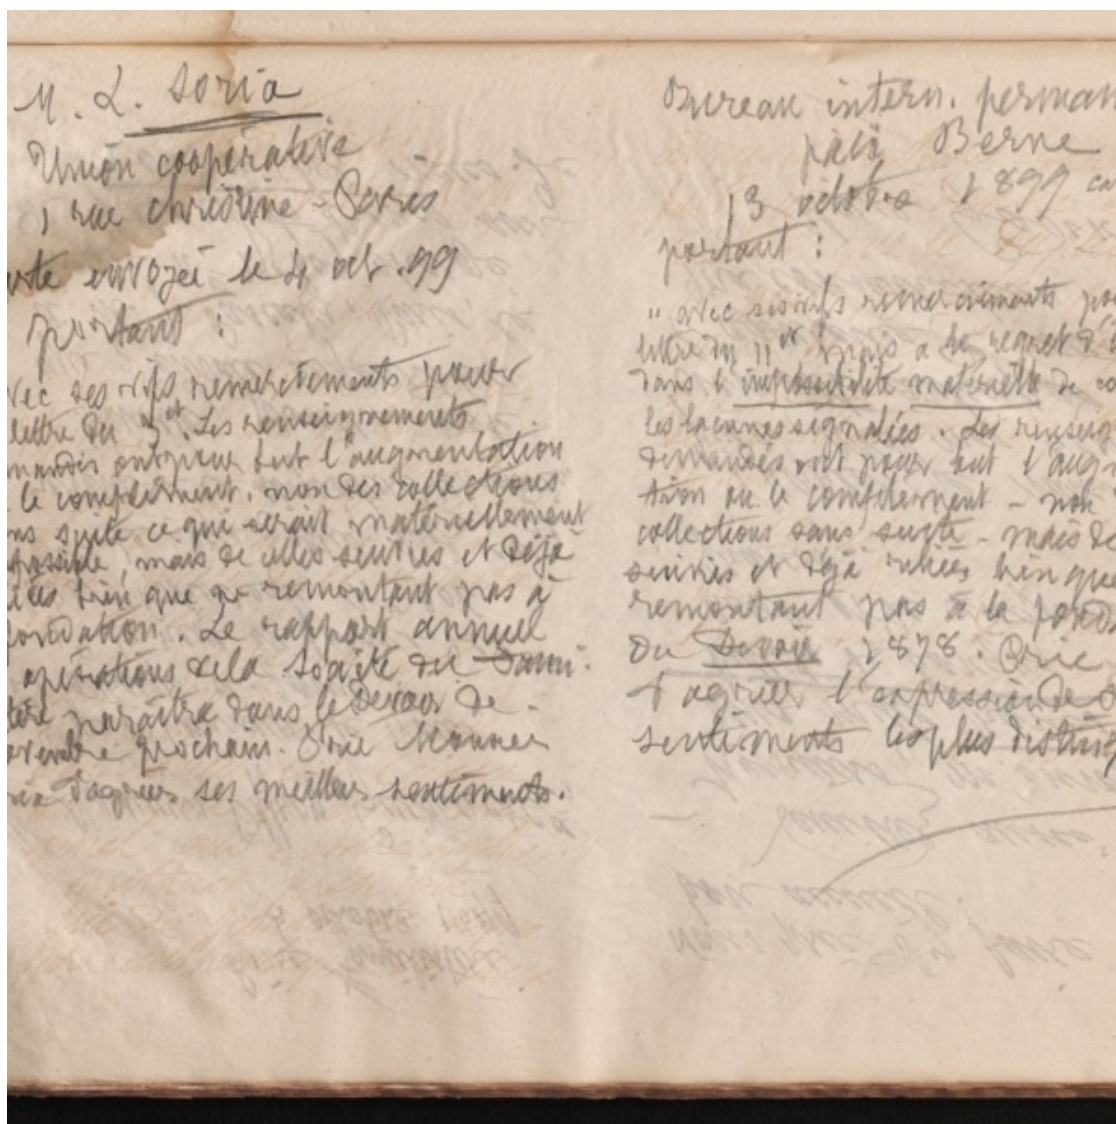 M. L. Soria
Union coopérative
1 rue Christine - Paris
envoyée le 4 oct. 99
portant :
avec ses vifs remerciements pour
lettre du 3 ct. Les renseignements
ont pour but l'augmentation
le complément, non des collections
suite ce que serait matériellement
mais de celles suivies et déjà
bien que ne remontant pas à
Le rapport annuel
opérations de la Société du Fami-
paraîtra dans le Devoir de
prochain. Prie Monsieur
d'agréer ses meilleurs sentiments.
Bureau intern. perman
paix Berne
13 octobre 1899
portant :
" avec ses vifs remerciements
lettre du 11 ct mais a le regret d'
dans l'impossibilité matérielle de
les lacunes signalées. Les renseig
demandés ont pour but l'aug-
tion ou le complément - non
collections sans suite - mais de
suivies et déjà reliées bien que
remontant pas à la fond
du Devoir 1878. Prie
d'agréer l'expression de
sentiments les plus disting